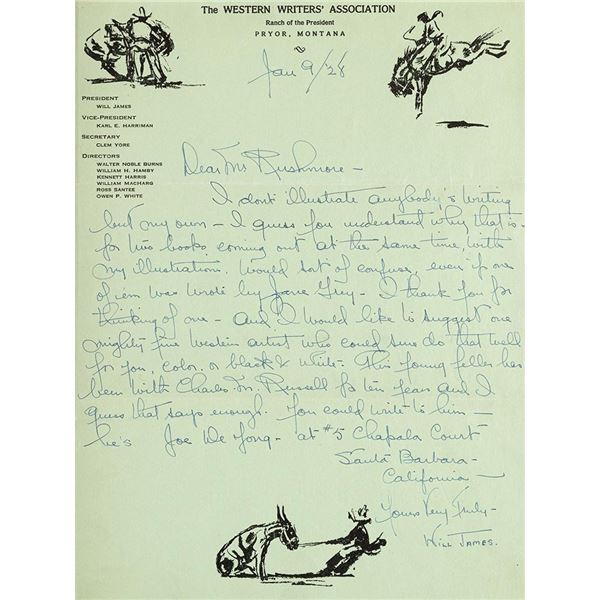 The WESTERN WRITERS' ASSOCIATION
Ranch of the President
PRYOR, MONTANA
Jan 9/28
PRESIDENT
WILL JAMES
VICE-PRESIDENT
KARL E. HARRIMAN
SECRETARY
CLEM YORE
DIRECTORS
WALTER NOBLE BURNS
WILLIAM H. HAMBY
KENNETT HARRIS
WILLIAM MACHARG
ROSS SANTEE
OWEN P. WHITE
Dear Mr Rushmore —
I don't illustrate anybody's writing
but my own — I guess you understand why that is —
for two books coming out at the same time, with
my illustrations, would sort of confuse, even if one
of 'em was wrote by Zane Grey — I thank you for
thinking of me — and I would like to suggest one
mighty fine Western artist who could sure do that well
for you, color, or black & white — This young feller has
been with Charles M. Russell for ten years and I
guess that says enough. You could write to him —
he's Joe De Yong — at #5 Chapala Court
Santa Barbara —
California —
Yours Very Truly —
WILL JAMES.